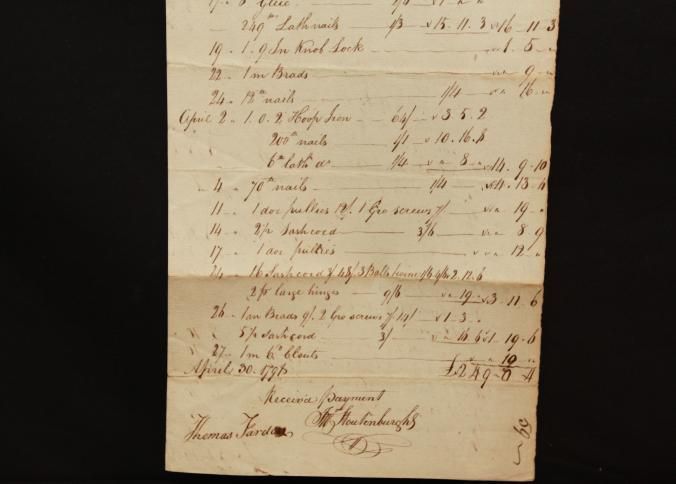 249 lb Lath nails 1/3 15.11.3 16 11 3
19 1.9 In Knob Lock 1 5
22 1 m Brads 9
24 12 lb nails 1/4 16
April 2 1.0.2 Hoop Iron 64/ 3.5.2
200 lb nails 1/1 10.16.8
6 lb lath do 1/4 8 14 9 10
4 70 lb nails 1/4 4.13.4
11 1 doz pullies 12/. 1 Gro screws 7/ 19
14 2½ Sash cord 3/6 8 9
17 1 doz pullies 12
24 16 Sash cord 3/ 48/. 3 Bolts 2.12.6
2 pr large hinges 9/6 19 3 11 6
26 1 m Brads 9/. 2 Gro screws 7/ 14/ 1.3
5½ Sash cord 3/ 16.6 1 19 6
27 1 m 6d Clouts 10
April 30. £249 0 4
Received payment
Thomas
69